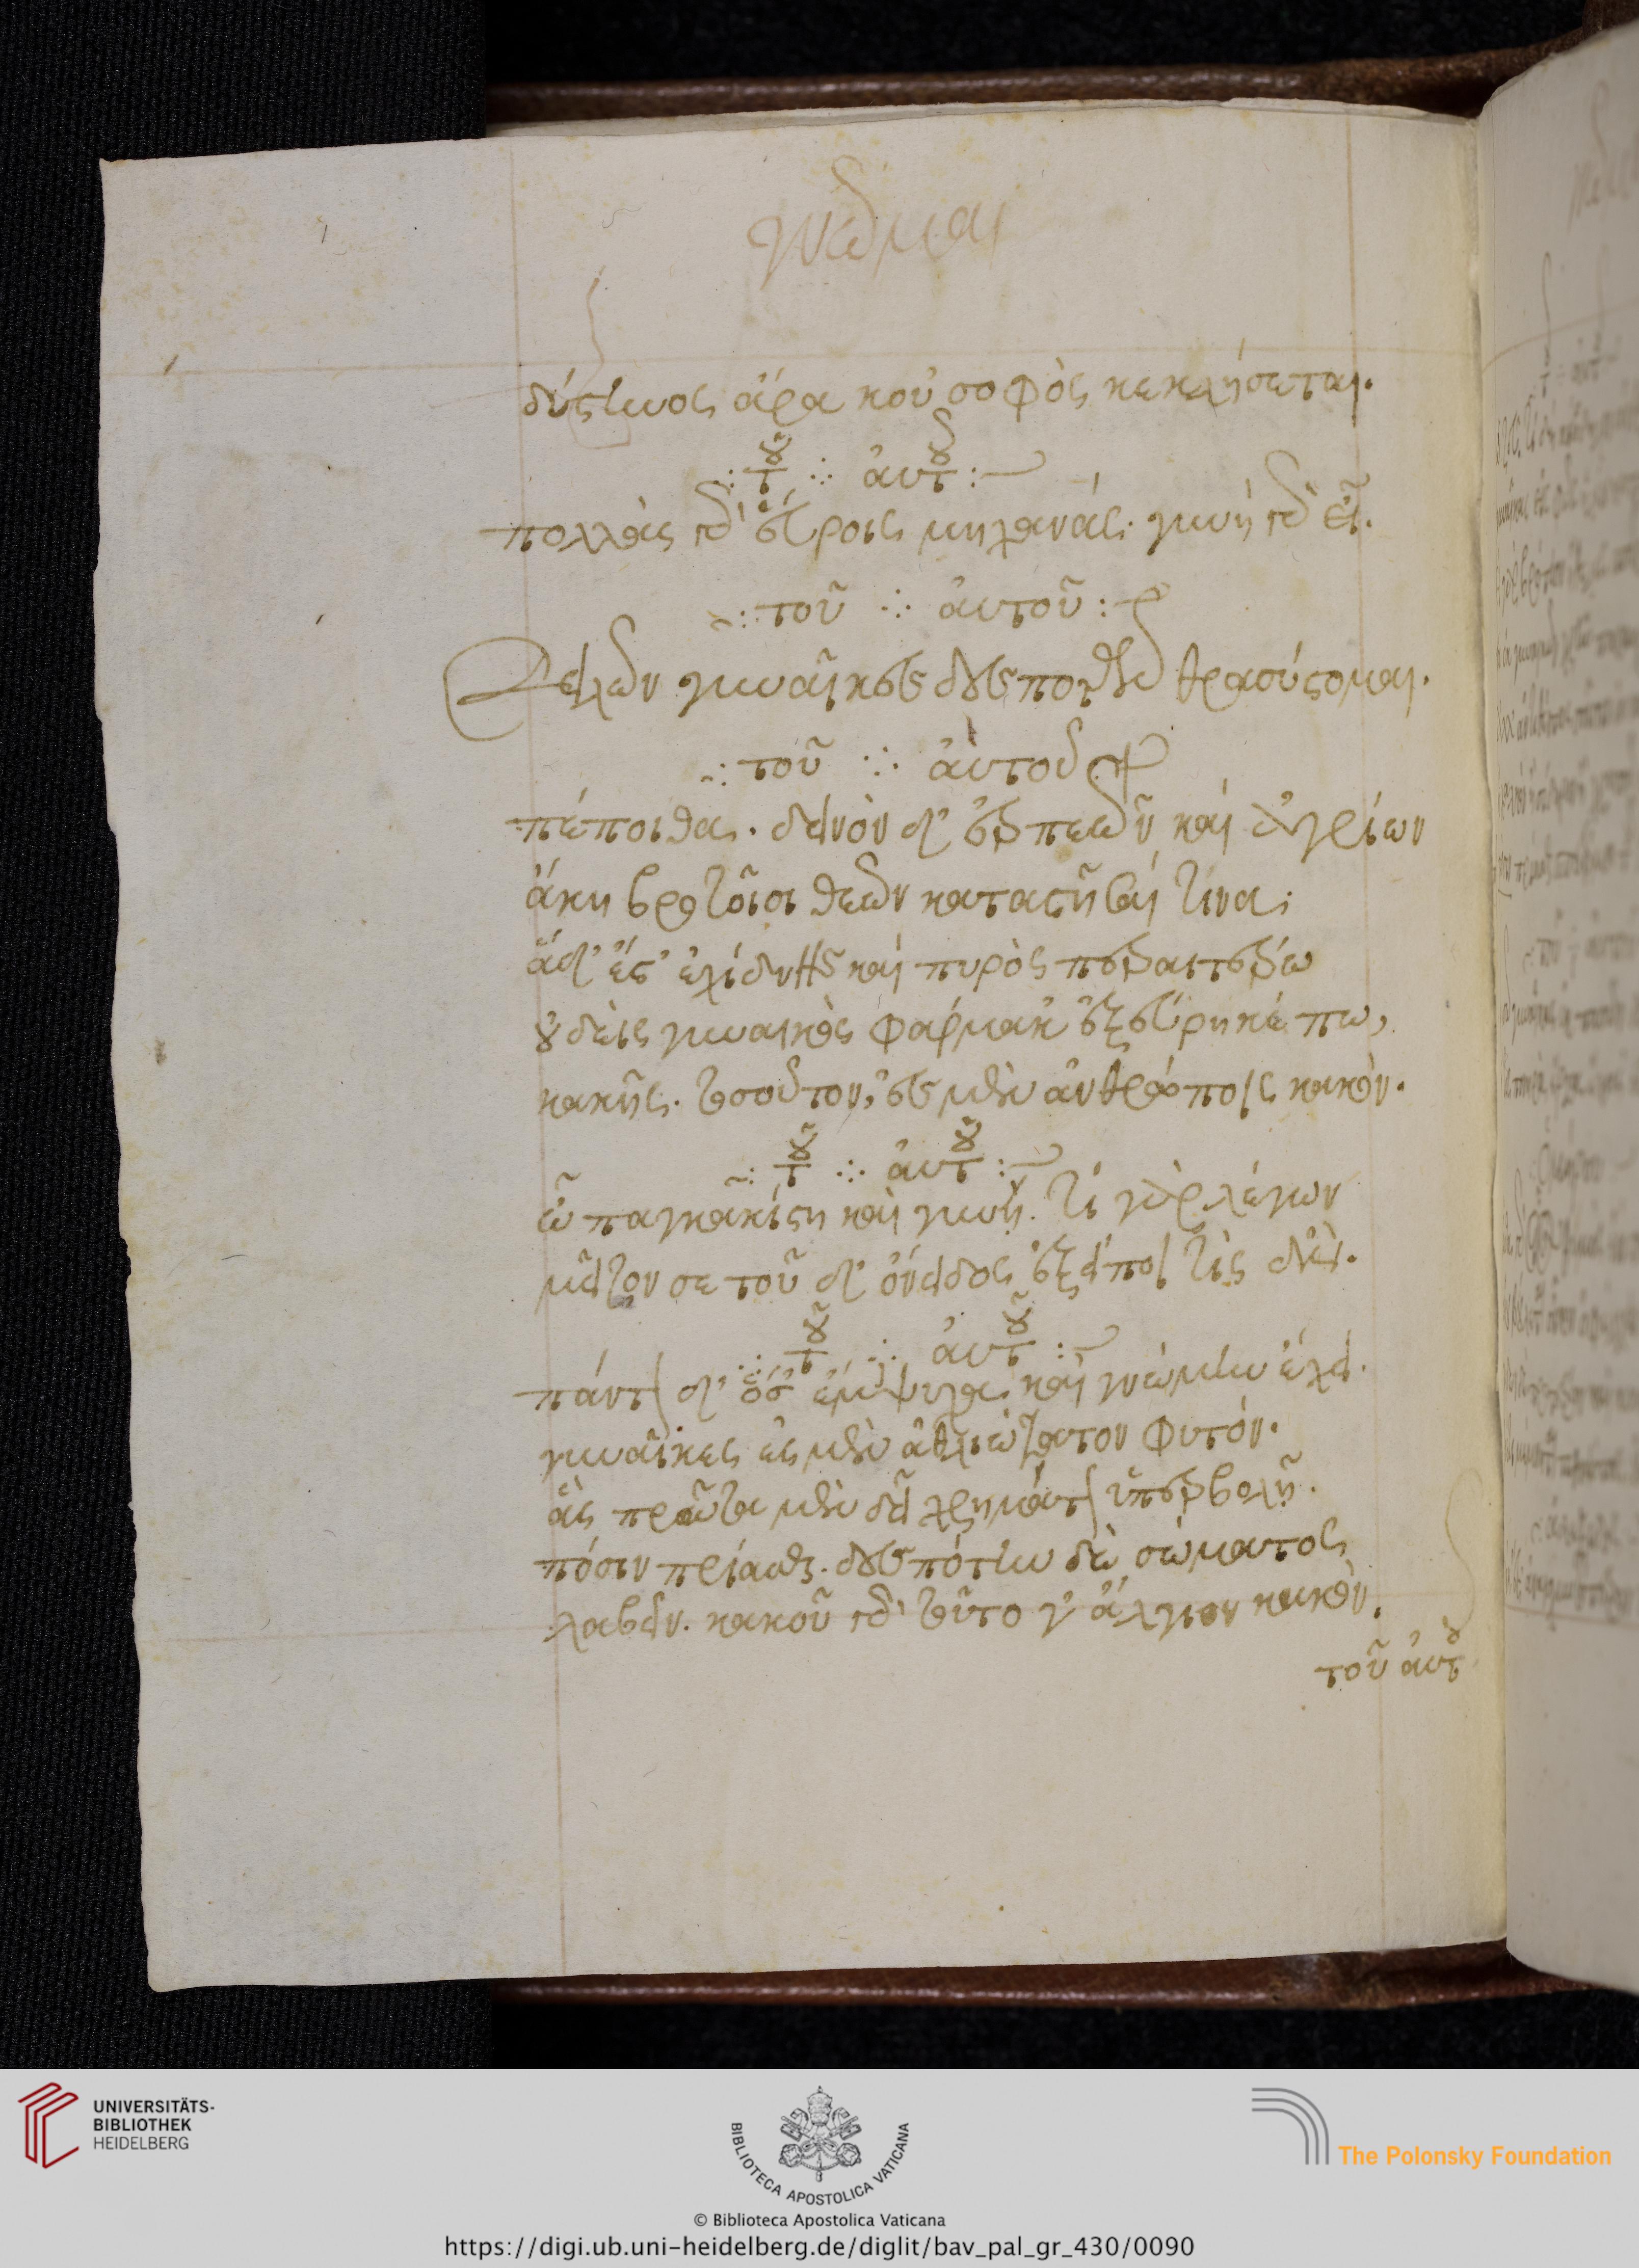 γνῶμαι
δύστηνος ἄρα κοὐ σοφὸς κεκλήσεται.
∴ τοῦ ∴ αὐτοῦ :
πολλὰς γὰρ εὕροις μηχανάς. γυνὴ γὰρ εἶ.
∴ τοῦ ∴ αὐτοῦ :
Δειλῶν γυναῖκες δεσποτῶν θρασύστομαι.
∴ τοῦ ∴ αὐτοῦ
πέποιθας. δεινὸν δ' ἑρπετῶν καὶ ἀγρίων
ἄκη βροτοῖσι θεῶν καταστῆσαί τινα·
ἃ δ' ἔστ' ἐχίδνης καὶ πυρὸς περαιτέρω
οὐδεὶς γυναικὸς φάρμακ' ἐξεύρηκέ πω,
κακῆς. τοσοῦτον, ἐσμὲν ἀνθρώποις κακόν.
∴ τοῦ ∴ αὐτοῦ :
ὦ παγκακίστη καὶ γυνή. τί γὰρ λέγων
μεῖζον σε τοῦ δ' ὄνειδος ἐξείποι τις ἄν.
∴ τοῦ ∴ αὐτοῦ :
πάντων δ' ὅσ' ἔμψυχα καὶ γνώμην ἔχει.
γυναῖκες ἐσμὲν ἀθλιώτατον φυτόν.
ἃς πρῶτα μὲν δεῖ χρημάτων ὑπερβολῇ.
πόσιν πρίασθαι. δεσπότην δὲ σώματος
λαβεῖν. κακοῦ γὰρ τοῦτο γ' ἄλγιον κακόν.
τοῦ αὐτοῦ
UNIVERSITÄTS-
BIBLIOTHEK
HEIDELBERG
BIBLIOTECA APOSTOLICA VATICANA
The Polonsky Foundation
© Biblioteca Apostolica Vaticana
https://digi.ub.uni-heidelberg.de/diglit/bav_pal_gr_430/0090